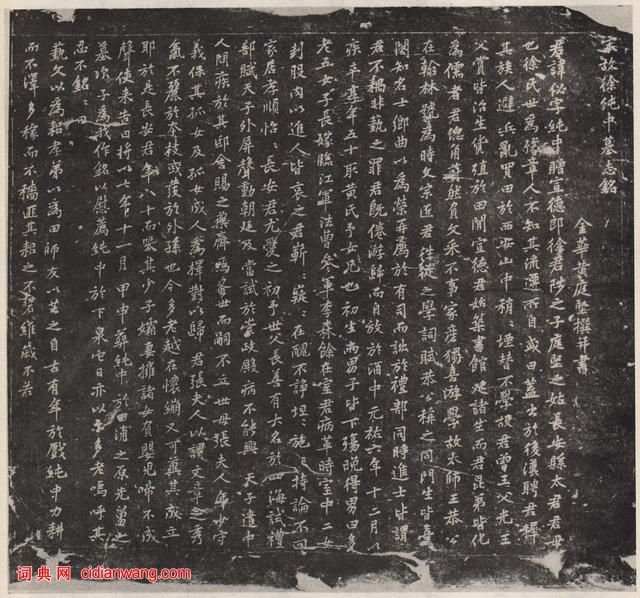 宋故徐纯中墓志銘
金華黄庭堅撰并書
君諱佖字純中贈宣德郎徐君陟之子庭堅之姑長安縣太君君母
也徐氏世為豫章人不知其流遷所自或曰蓋出於後漢聘君穉
其族人避兵亂買田於西安山中稍堙替不學故君曾王父先王
父貲皆治生貨殖於田間宣德君始築書館延諸生而君昆弟皆化
為儒者君總角聳然負文采不事家產獨喜游學故太師王恭公
在翰林號為時文宗匠君往從之學詞賦恭公稱之同門生皆臺
閣知名士鄉曲以為榮再薦於有司而詘於禮部同時進士皆謂
君不耦非藝之罪君既倦游歸而自放於酒中元祐六年十二月以
疾卒享年五十取黄氏予女兄也初生兩男子皆下殤晚得男曰多
老五女子長嫁臨江軍法曹參軍李餘在室君病革時室中二女
刲股肉以進人皆哀之君嶄嶄巖巖在醜不諍坦坦施施持論不回
家居孝順怡怡長安君尤愛之初予世父長善有大名於四海試禮
部賦天子外屏聲動朝廷及當試於崇政殿病不能興 天子遣中
人問疾於其邸舍賜之藥齊嗚蕃世而嗣不立世母張夫人年少守
義保其孤女及孤女成人為擇對以歸 君張夫人以謂文章之秀
氣不發於本枝或度於外孫也今多老越在懷繃又可冀其成立
耶於是長安君年八十而哭其少子孀妻擁諸女賀賀兒啼不成
聲使來告曰將以七年十一月甲申葬純中於 浦之原先君之
墓次子為我作銘以慰薦純中於下泉它日亦以多老嗚呼其
忍不銘銘曰
藝文以為稻孝弟以為田師友以芸之自古有年於戲純中力耕
而不澤多稼而不穡匪其耕之不若維歲不若
词典网 cidianwang.com